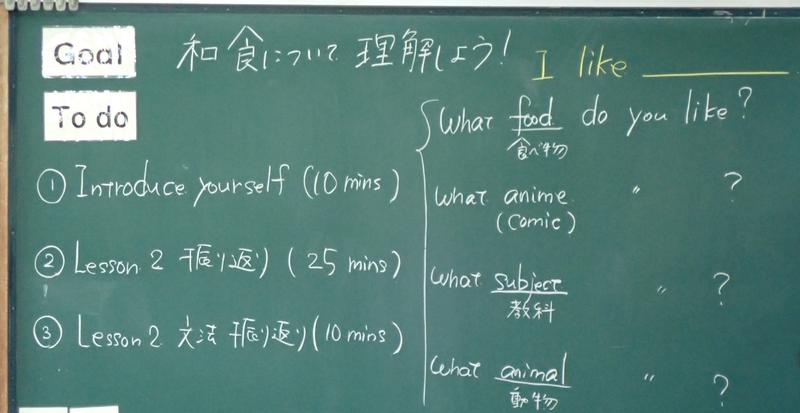 Goal 和食について理解しよう!
To do
① Introduce yourself (10 mins)
② Lesson 2 振り返り (25 mins)
③ Lesson 2 文法 振り返り (10 mins)
I like ________
What food do you like?
食べ物
What anime 〃 ?
(comic)
What subject 〃 ?
教科
What animal 〃 ?
動物